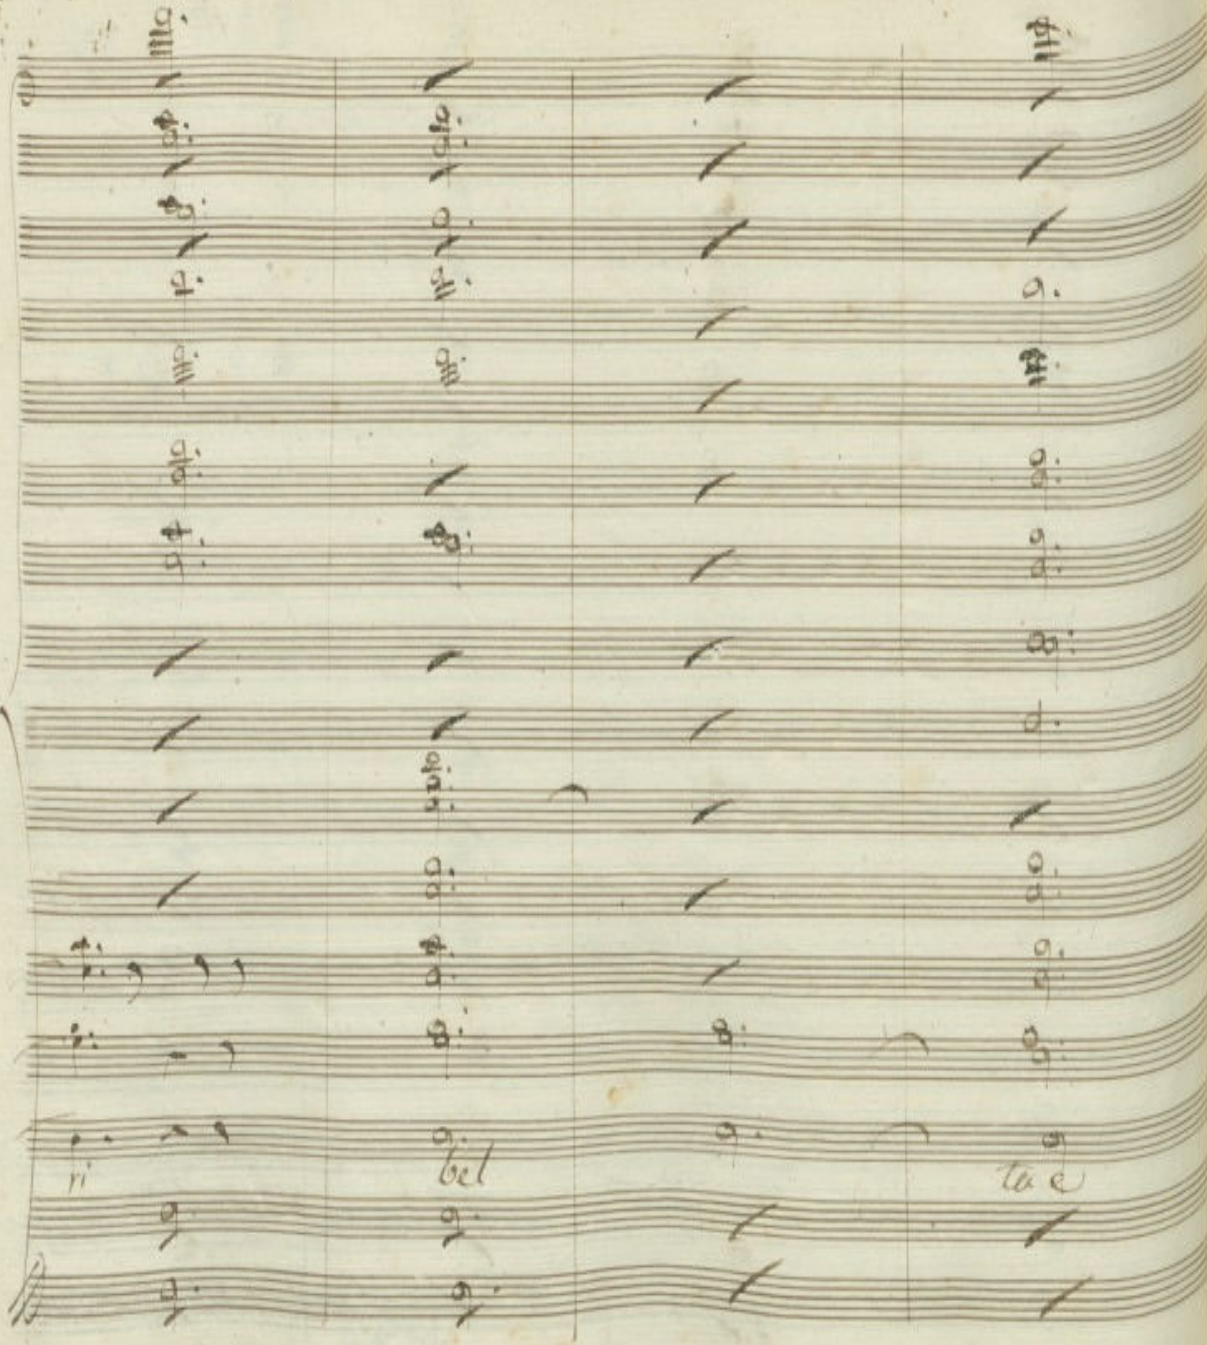 ri bel ta e